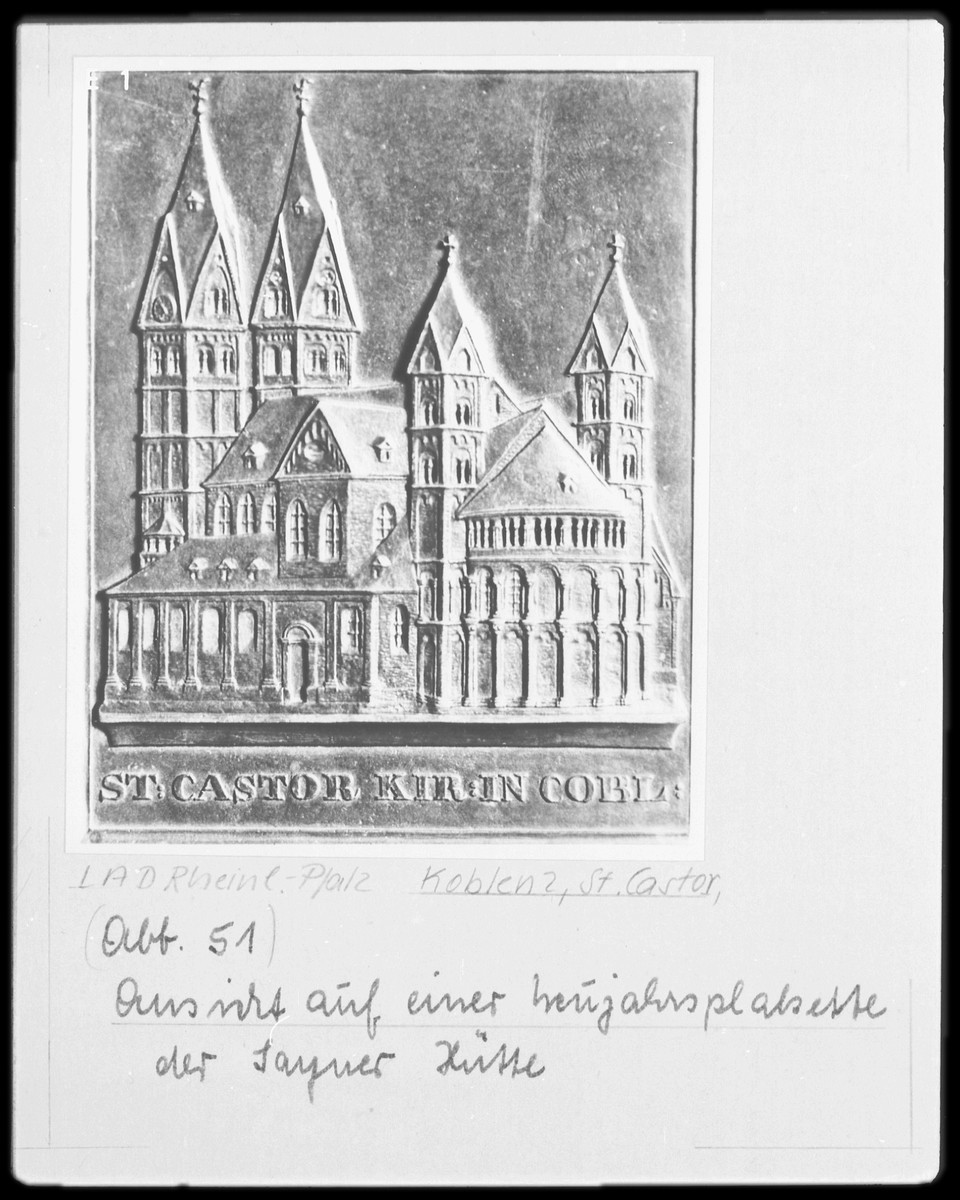 E 1
ST: CASTOR KIR: IN COBL:
LAD Rheinl.-Pfalz Koblenz, St. Castor,
(Abb. 51)
Ansicht auf einer Neujahrsplakette
der Sayner Hütte